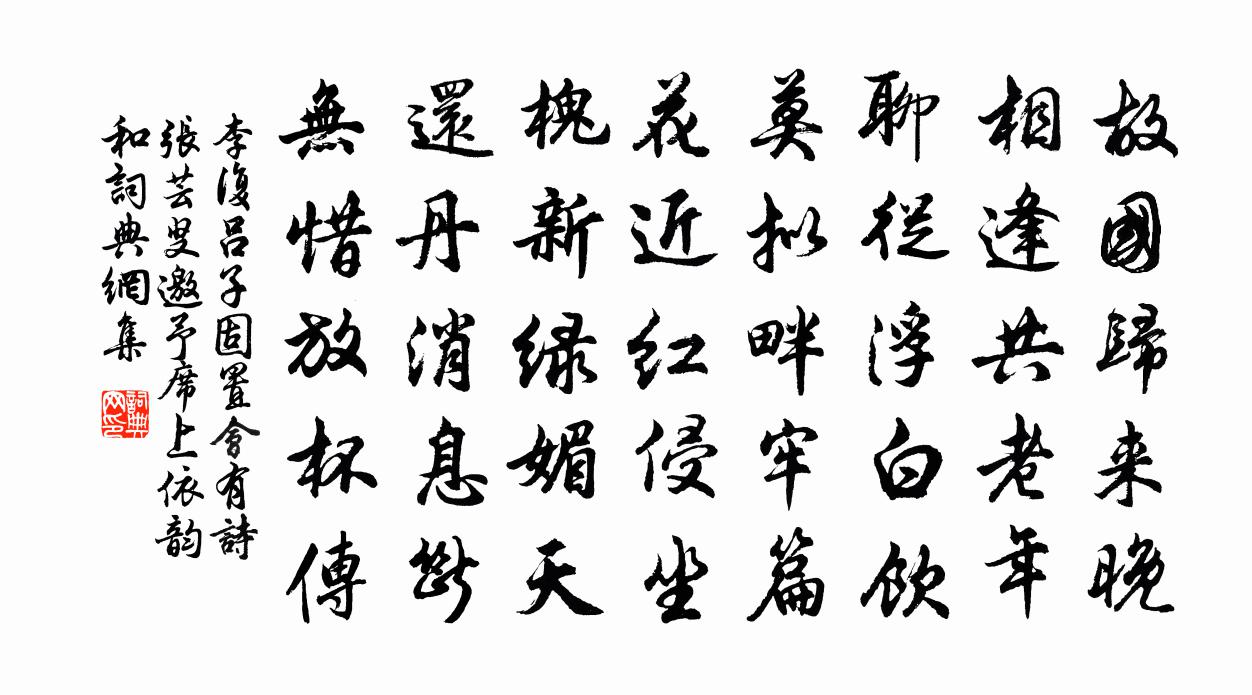 故國歸来晚
相逢共老年
聊從浮白飲
莫拟畔牢篇
花近红侵坐
槐新绿媚天
還丹消息斷
無惜放杯傳
李復吕子固置會有詩
張芸叟邀予席上依韵
和詞典網集
詞典网印